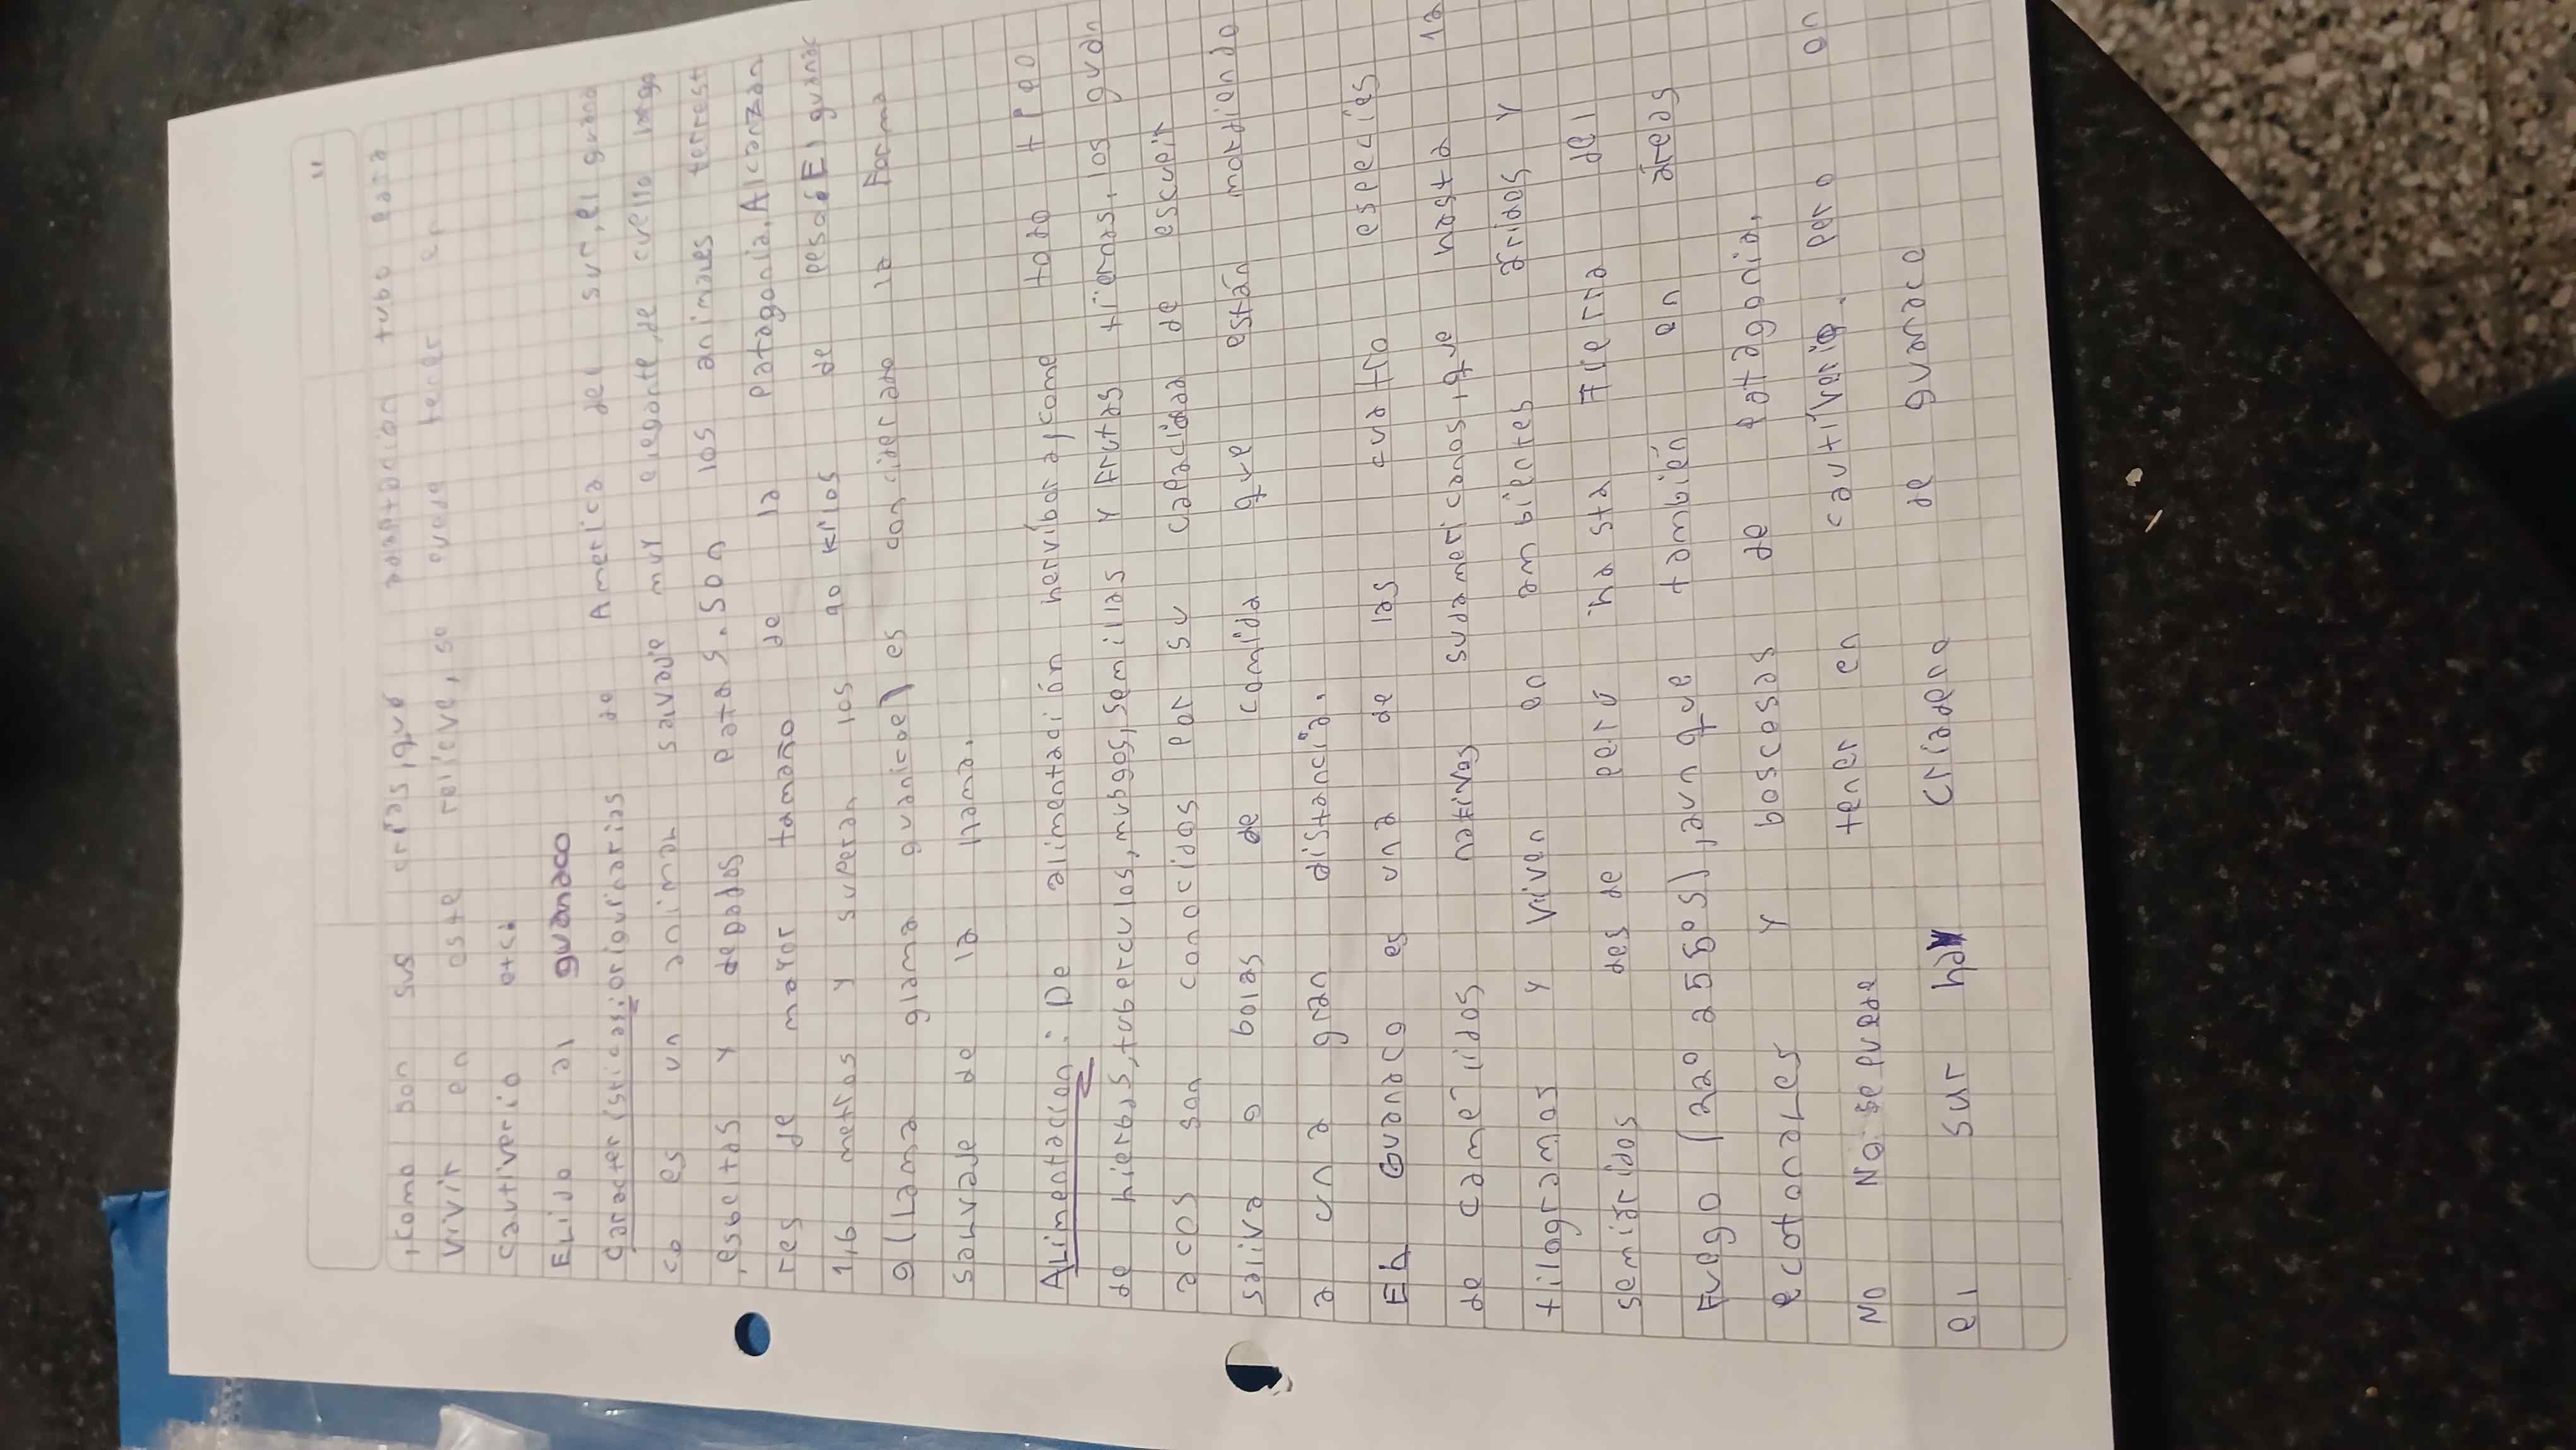 ,como son sus crías,qué adaptacion tubo para
vivir en este relieve, se puede tener en
cautiverio etc:
Elido al guanaco
Caracter(sticas:origurinarias de America del sur, el guana
co es un animal salvaje muy elegante,de cuello largo
,esbeltas y depados patas. Son los animales terrest
res de mayor tamaño de la patagonia. Alcanzan
1,6 metros y superan los 90 kilos de peso. El guanac
o(Lama glama guanicoe) es considerado la forma
salvaje de la llama.
Alimentacion: De alimentación hervíbora,come todo tipo
de hierbas,tuberculos,musgos,semillas y frutas tiernas. los guan
acos son conocidos por su capacidad de escupir
saliva o bolas de comida que están mordiendo
a una gran distancia.
EL Guanaco es una de las cuatro especies
de camélidos nativos sudamericanos,que hasta 12
tilogramos y viven en ambientes áridos y
semiáridos desde perú hasta Tierra del
Fuego (220 a 55°s),aunque también en áreas
ecotonales y boscoses de patagonia.
No No. se puede tener en cautiverio. pero en
el sur hay criadero de guanaco